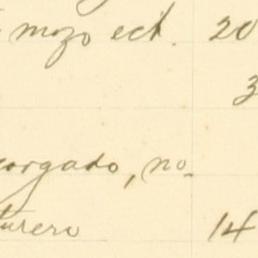 mozo ect. 20
3
corgado, no.
turero 14